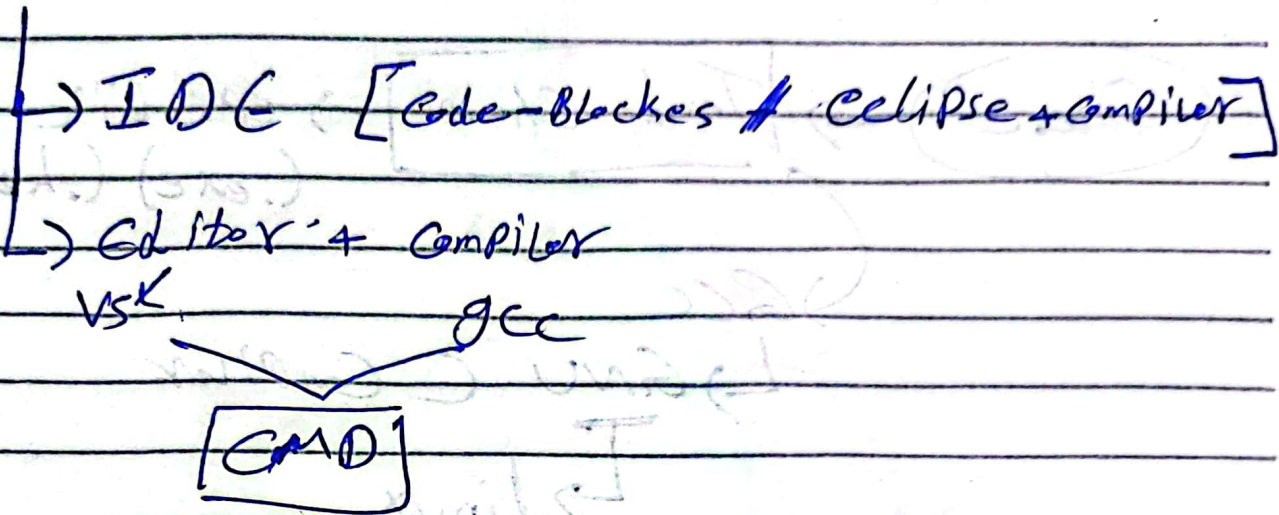 → IDE [Code-Blockes / eclipse + compiler]
→ Editor + Compiler
VS gcc
CMD